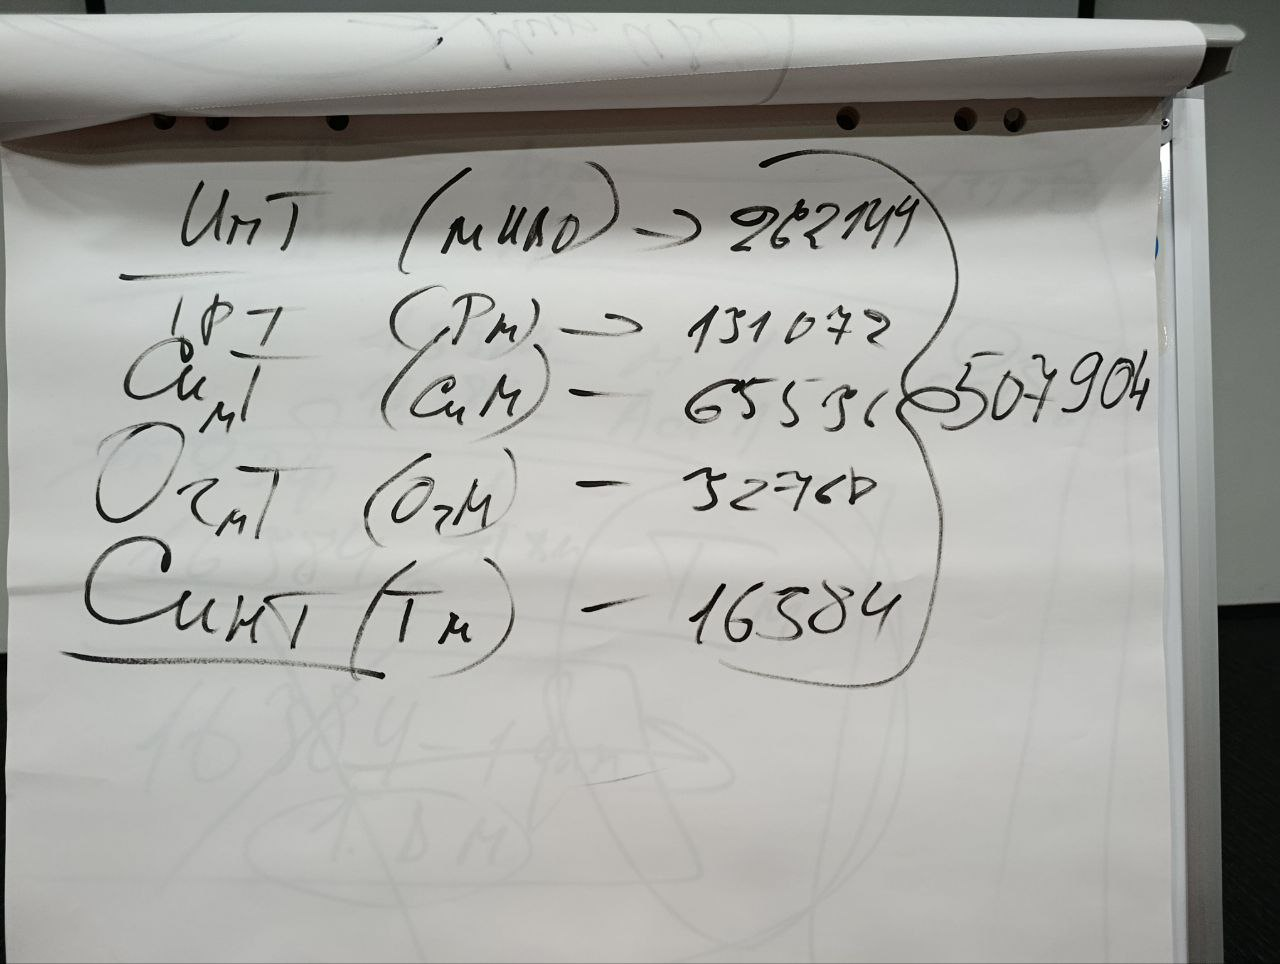 ИмТ (МИЛО) → 262144
ТРТ (Рм) → 131072
СимТ (СиМ) – 65536
ОгмТ (ОгМ) – 32768
СинТ (Тм) – 16384
507904